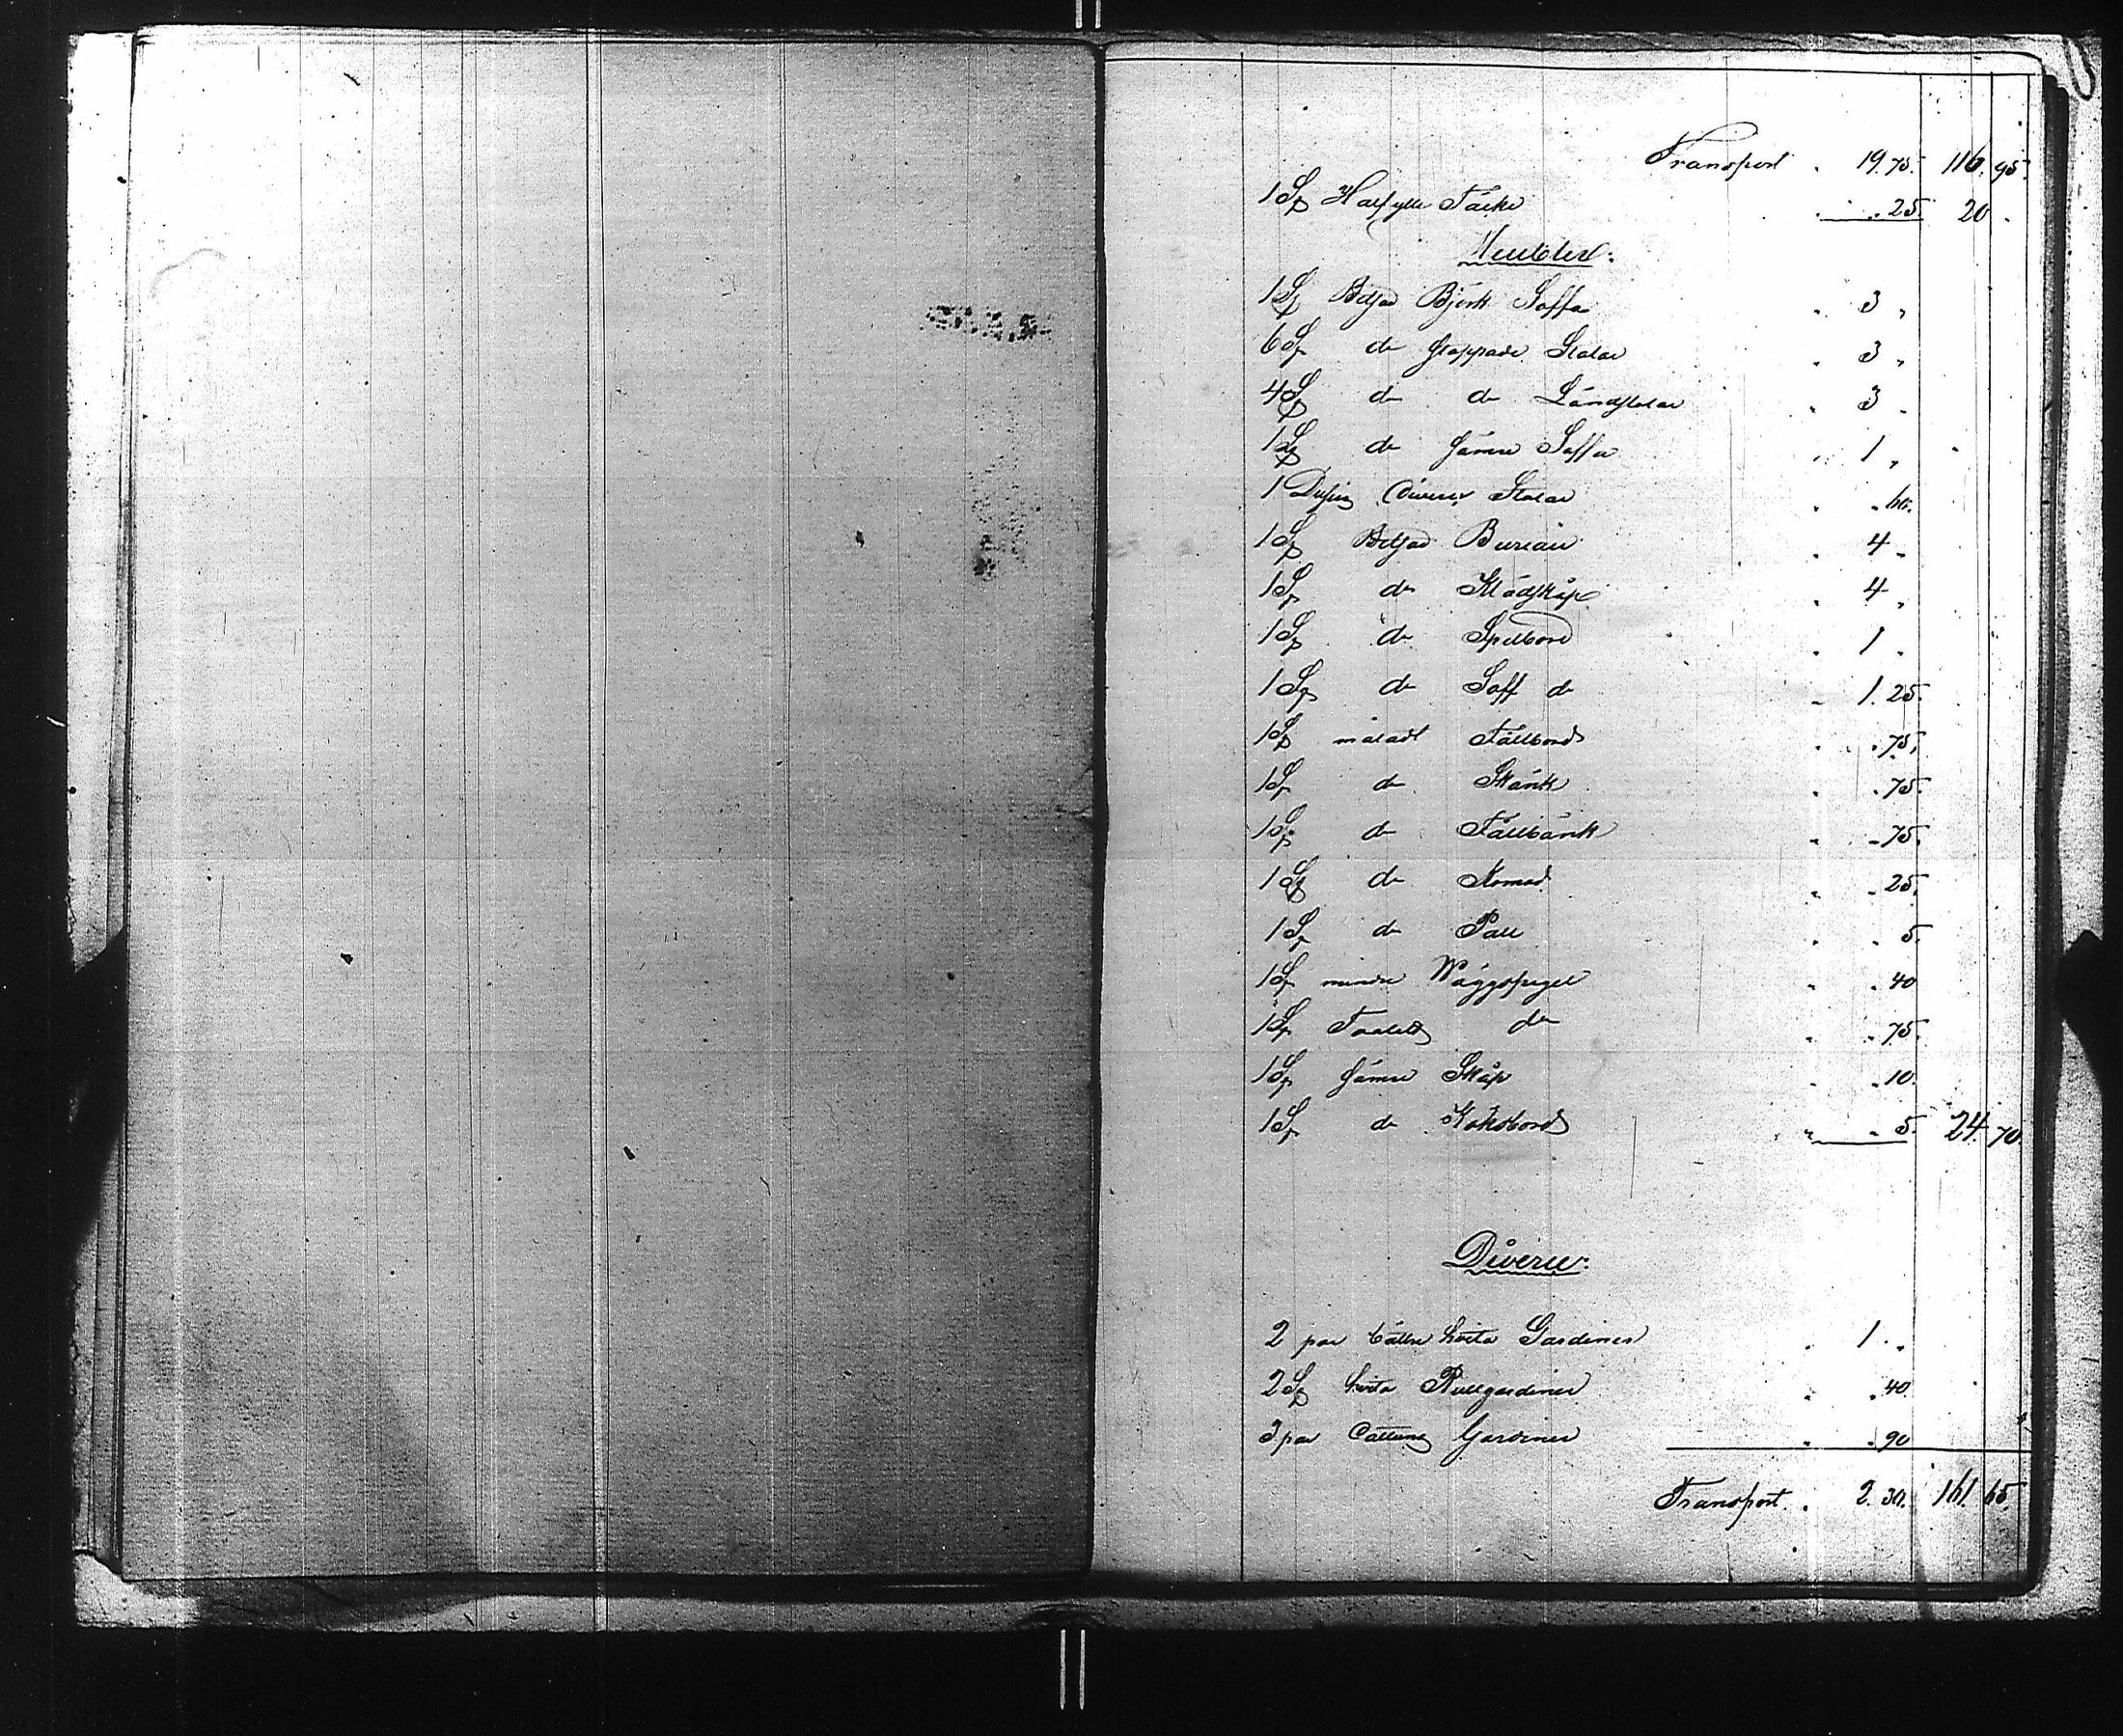 Transport . 19.75. 116.95.
1 St Halfylle Täcke . . 25. 20 .
Meubler:
1 St Betsad Björk Soffa . 3 "
6 St do stoppade Stolar . 3 "
4 St do do Länstolar . 3 "
1 St do sämre Soffa " 1 "
1 Dussin diverse Stolar " " 60.
1 St Betsad Bureau . 4 "
1 St do Klädskåp . 4 "
1 St do Spelbord . 1 "
1 St do Soff do " 1. 25.
1 St måladt Fällbord . . 75.
1 St do Skänk . . 75.
1 St do Fällbänk " " 75.
1 St do Komod " " 25.
1 St do Pall " . 5.
1 St mindre Wäggspegel " . 40
1 St Toalett do " . 75.
1 St sämre Skåp " . 10.
1 St do Köksbord " " 5. 24. 70.
Diverse:
2 par bättre hvita Gardiner . 1 . "
2 St hvita Rullgardiner " . 40
3 par Cattuns Gardiner " . 90
Transport . 2. 30. 161. 65